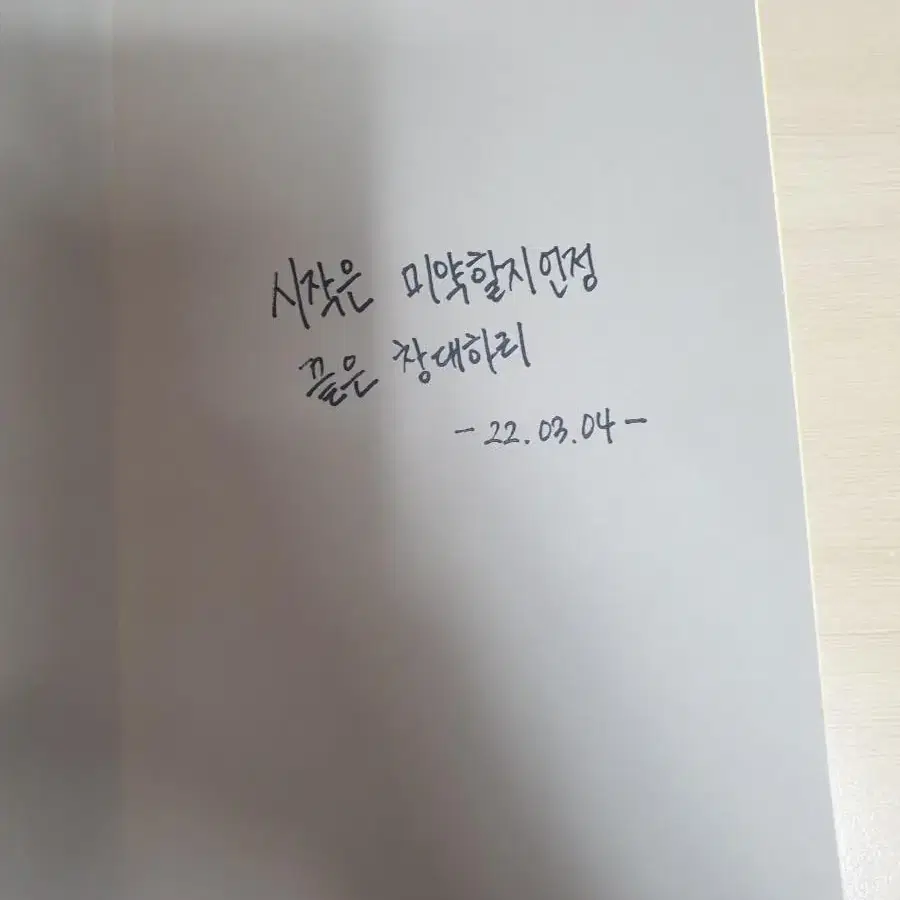 시작은 미약할지언정
끝은 창대하리
- 22.03.04 -